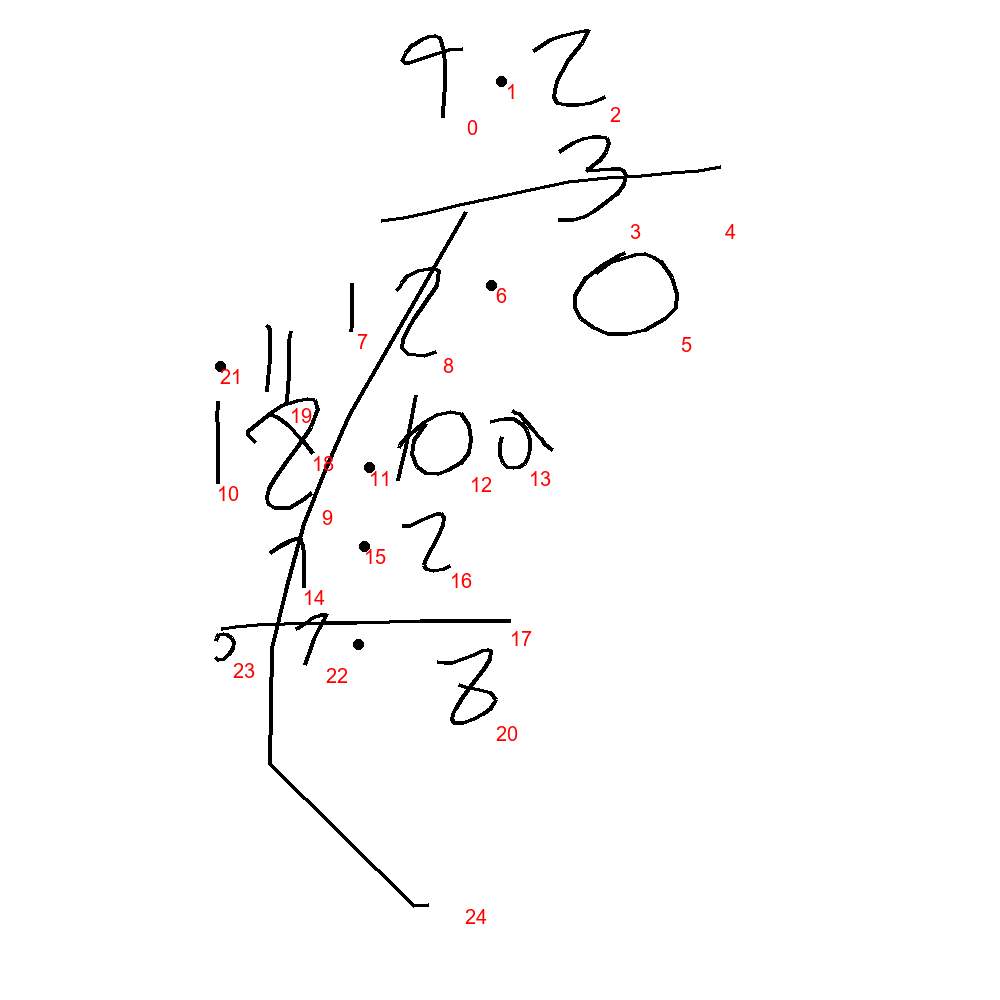 9 . 2
0 1 2
3
3 4
1 2 . 0
7 8 6 5
11
21 19
1 8 . 10 0
10 9 18 11 12 13
7 . 2
14 15 16
17
0 7 . 8
23 22 20
24